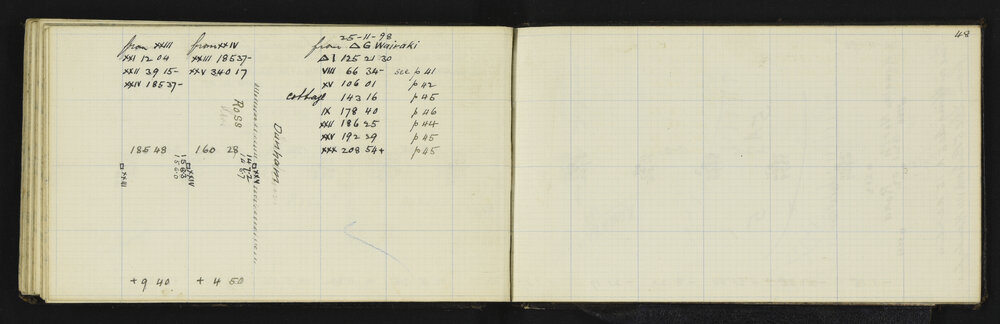 48
25-11-98
from XXIII from XXIV from △G Wairaki
XXI 12 04 XXIII 18537- △I 125 21 30
XXII 39 15- XXV 340 17 VIII 66 34- see p 41
XXIV 18537- XV 106 01 p 42
cottage 143 16 p 45
IX 178 40 p 46
XXII 186 25 p 44
XXV 192 29 p 45
1848 160 28 XXX 208 54+ p 45
Ross
Dunhaim
XXIII
XXIV
1583
1560
XXV
1472
1687
+9 40 +4 50